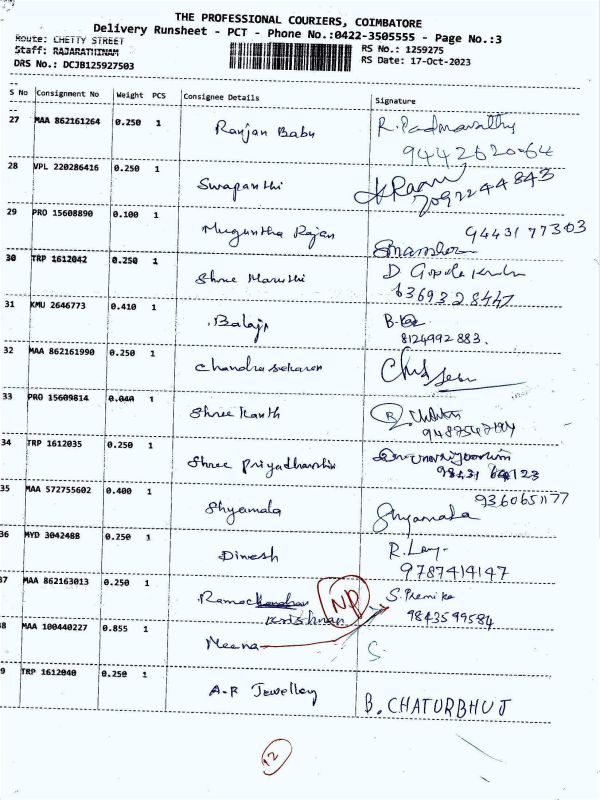 THE PROFESSIONAL COURIERS, COIMBATORE
Delivery Runsheet - PCT - Phone No.:0422-3505555 - Page No.:3
Route: CHETTY STREET
RS No.: 1259275
Staff: RAJARATHINAM
RS Date: 17-Oct-2023
DRS No.: DCJB125927503
S No Consignment No Weight PCS Consignee Details Signature
27 MAA 862161264 0.250 1 Ranjan Babu R. Padmavathy
9442620264
28 VPL 220286416 0.250 1 Swapanthi
7092244843
29 PRO 15608890 0.100 1 Muguntha Rajan 9443177303
30 TRP 1612042 0.250 1 Shree Maruthi D
6369328447
31 KMU 2646773 0.410 1 Balaji B.
8124992883.
32 MAA 862161990 0.250 1 Chandra sekaran
33 PRO 15609814 0.040 1 Shree Kanth
34 TRP 1612035 0.250 1 Shree Priyadharshi
35 MAA 572755602 0.400 1 Shyamala Shyamala 9360651177
36 MYD 3042488 0.250 1 Dinesh R.
9787414147
37 MAA 862163013 0.250 1 Rama NP S. Premika
krishnan 9843599584
38 MAA 100440227 0.855 1 Meena S
39 TRP 1612040 0.250 1 A.R Jewellery B. CHATURBHUJ
12